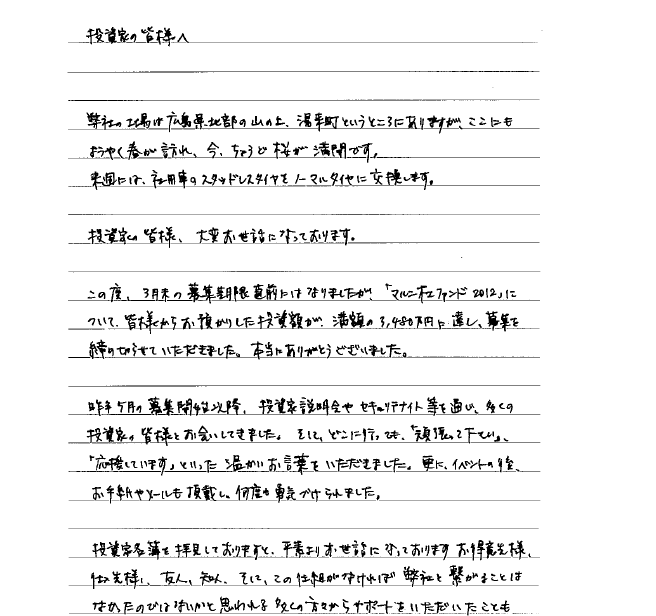 投資家の皆様へ
弊社の工場は広島県北部の山の上、湯来町というところにありますが、ここにも
ようやく春が訪れ、今、ちょうど桜が満開です。
来週には、社用車のスタッドレスタイヤをノーマルタイヤに交換します。
投資家の皆様、大変お世話になっております。
この度、3月末の募集期限直前にはなりましたが、「マルニ木工ファンド2012」に
ついて、皆様からお預かりした投資額が、満額の3,480万円に達し、募集を
締め切らせていただきました。本当にありがとうございました。
昨年5月の募集開始以降、投資家説明会やセキュリテナイト等を通じ、多くの
投資家の皆様とお会いしてきました。そして、どこに行っても、「頑張って下さい」、
「応援しています」といった温かいお言葉をいただきました。更に、イベントの後、
お手紙やメールも頂戴し、何度も勇気づけられました。
投資家名簿を拝見しておりますと、平素よりお世話になっておりますお得意先様、
仕入先様、友人、知人、そして、この仕組がなければ弊社と繋がることは
なかったのではないかと思われる多くの方々からサポートをいただいたことも